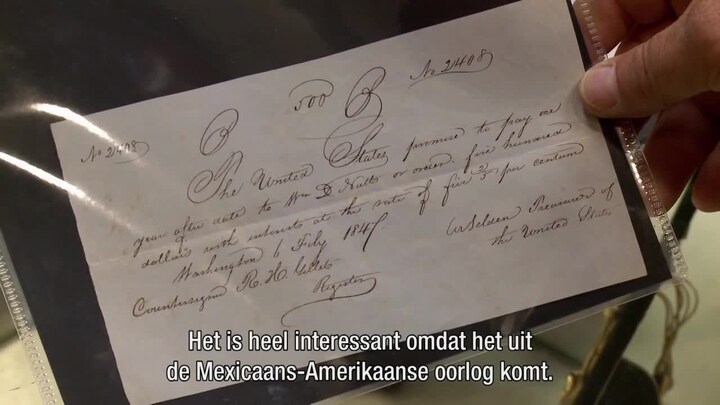 No 2408
B 500 B
No 2408
The United States promise to pay one
year after date to Wm D Nutts or order five hundred
dollars with interest at the rate of five 2/5 per centum
Washington 6 July 1847
Countersigned R. H. Gillet
Register
W Selden Treasurer of
the United States
Het is heel interessant omdat het uit
de Mexicaans-Amerikaanse oorlog komt.